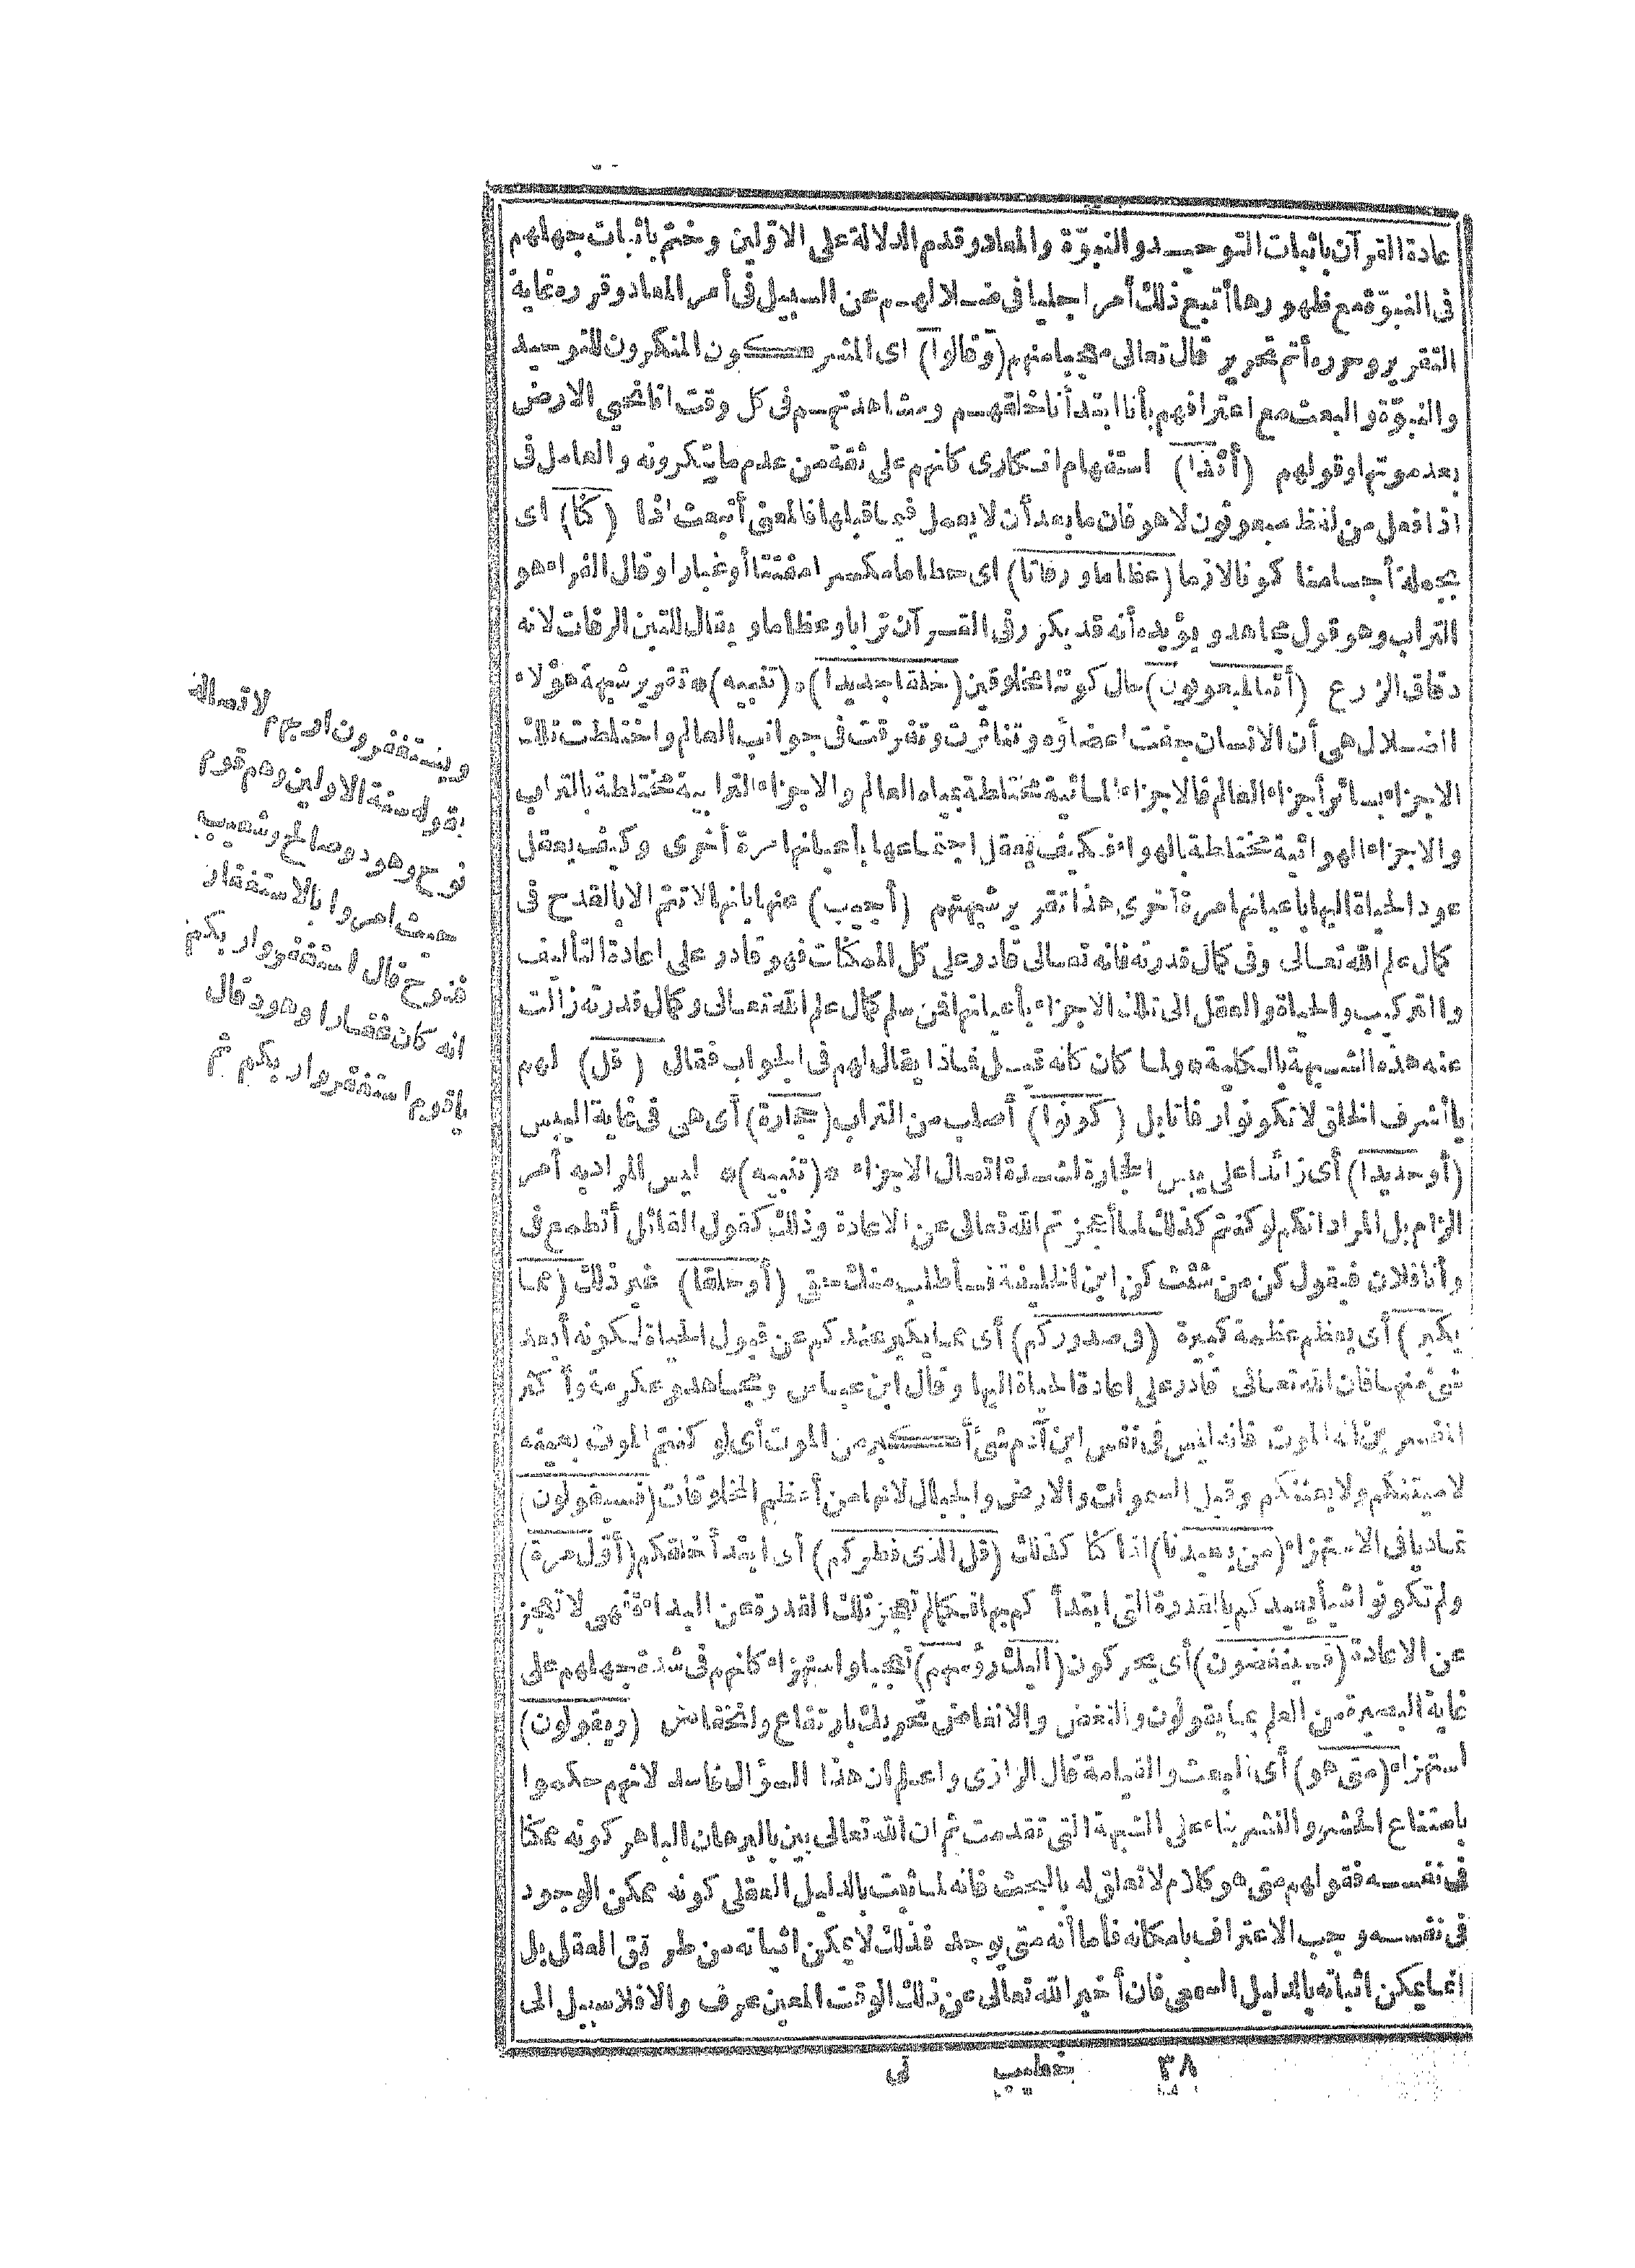 عادة القرآن باثبات التوحيد والنبوّة والمعاد وقدم الدلالة على الاوّلين وختم باثبات جهلهم
فى النبوّة مع ظهورها أتبع ذلك أمرا جليا فى ضلالهم عن السبيل فى أمر المعاد وقرره غاية
التقرير وحرره أتم تحرير قال تعالى معجبا منهم (وقالوا) اى المشركون المنكرون للتوحيد
والنبوّة والبعث مع اعترافهم بأنا ابتدأنا خلقهم ومشاهدتهم فى كل وقت انا نحيي الارض
بعد موتها وقولهم (أئذا) استفهام انكارى كانهم على ثقة من عدم ما ينكرونه والعامل فى
اذا فعل من لفظ مبعوثون لا هو فان ما بعد أن لا يعمل فيما قبلها فالمعنى أنبعث اذا (كنا) اى
بجملة أجسامنا كونا لازما (عظاما ورفاتا) اى حطاما مكسرا مفتتا أو غبارا وقال الفراء هو
التراب وهو قول مجاهد ويؤيده أنه قد يكرر فى القرآن ترابا وعظاما ويقال للتبن الرفات لانه
دقاق الزرع (أئنا لمبعوثون) حال كوننا مخلوقين (خلقا جديدا) * (تنبيه) * تقرير شبهة هؤلاء
الضلال هى أن الانسان جفت اعضاؤه وتناثرت وتفرقت فى جوانب العالم واختلطت تلك
الاجزاء بسائر أجزاء العالم فالاجزاء المائية مختلطة بمياه العالم والاجزاء الترابية مختلطة بالتراب
والاجزاء الهوائية مختلطة بالهواء فكيف يعقل اجتماعها بأعيانها مرة أخرى وكيف يعقل
عود الحياة اليها باعيانها مرة أخرى هذا تقرير شبهتهم (أجيب) عنها بانها لا تتم الا بالقدح فى
كمال علم الله تعالى وفى كمال قدرته فانه تعالى قادر على كل الممكنات فهو قادر على اعادة التأليف
والتركيب والحياة والعقل الى تلك الاجزاء بأعيانها فمن سلم كمال علم الله تعالى وكمال قدرته زالت
عنه هذه الشبهة بالكلية * ولما كان كانه قيل فماذا يقال لهم فى الجواب فقال (قل) لهم
يا أشرف الخلق لا تكونوا رفاتا بل (كونوا) أصلب من التراب (حجارة) أى هى فى غاية اليبس
(أو حديدا) أى زائدا على يبس الحجارة لشدة اتصال الاجزاء * (تنبيه) * ليس المراد به أمر
الزام بل المراد انكم لو كنتم كذلك لما أعجزتم الله تعالى عن الاعادة وذلك كقول القائل أتطمع فى
وأنا فلان فيقول كن من شئت كن ابن الخليفة فسأطلب منك حقى (أو خلقا) غير ذلك (مما
يكبر) أى يعظم عظمة كبيرة (فى صدوركم) أى مما يكبر عندكم عن قبول الحياة لكونه أبعد
شئ منها فان الله تعالى قادر على اعادة الحياة اليها وقال ابن عباس ومجاهد وعكرمة وأكثر
المفسرين انه الموت فانه ليس فى نفس ابن آدم شئ أكبر من الموت أى لو كنتم الموت بعينه
لاميتنكم ولابعثنكم وقيل السموات والارض والجبال لانها من أعظم المخلوقات (فسيقولون)
تماديا فى الاستهزاء (من يعيدنا) اذا كنا كذلك (قل الذى فطركم) أى ابتدأ خلقكم (أوّل مرة)
ولم تكونوا شيأ يعيدكم بالقدرة التى ابتدأكم بها فكما لم تعجز تلك القدرة عن البداءة فهى لا تعجز
عن الاعادة (فسينغضون) أى يحركون (اليك رؤسهم) تعجبا واستهزاء كانهم فى شدة جهلهم على
غاية البصيرة من العلم بما يقولون والنغض والانغاض تحريك بارتفاع وانخفاض (ويقولون)
استهزاء (متى هو) أى البعث والقيامة قال الرازى واعلم ان هذا السؤال فاسد لانهم حكموا
بامتناع الحشر والنشر بناء على الشبهة التى تقدمت ثم ان الله تعالى بين بالبرهان الباهر كونه ممكنا
فى نفسه فقولهم متى هو كلام لا تعلق له بالبحث فانه لما ثبت بالدليل العقلى كونه ممكن الوجود
فى نفسه وجب الاعتراف بامكانه فأما أنه متى يوجد فذلك لا يمكن اثباته من طريق العقل بل
انما يمكن اثباته بالدليل السمعى فان أخبر الله تعالى عن ذلك الوقت المعين عرف والا فلا سبيل الى
٣٨ خطيب نى
ويستغفرون اربهم لاتصاله
بقوله سنة الاولين وهم قوم
نوح وهود وصالح وشعيب
حيث امروا بالاستغفار
فنوح قال استغفروا ربكم
انه كان غفارا وهود قال
ياقوم استغفروا ربكم ثم